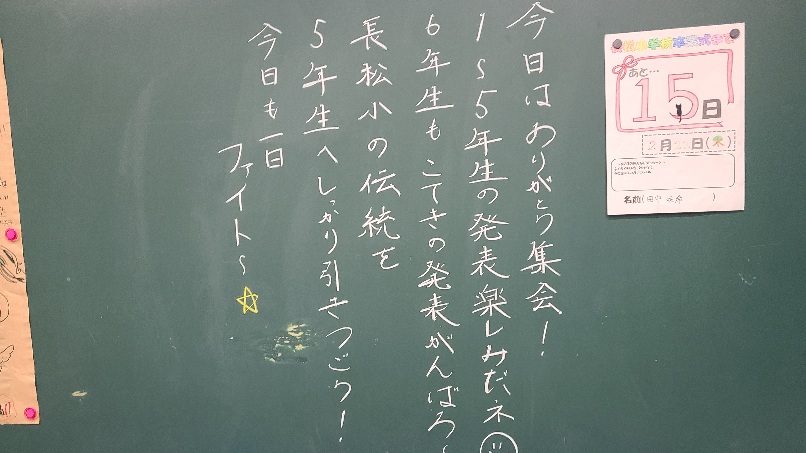 今日はありがとう集会！
1～5年生の発表楽しみだネ
6年生もこてきの発表がんばろ～
長松小の伝統を
5年生へしっかり引きつごう！
今日も一日
ファイト～
あと…
15日
2月22日(木)
名前(